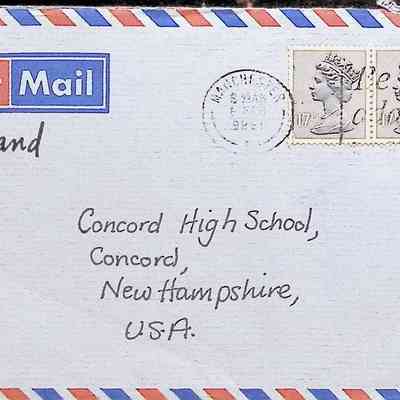 Mail
and
MANCHESTER
Concord High School,
Concord,
New Hampshire,
U.S.A.